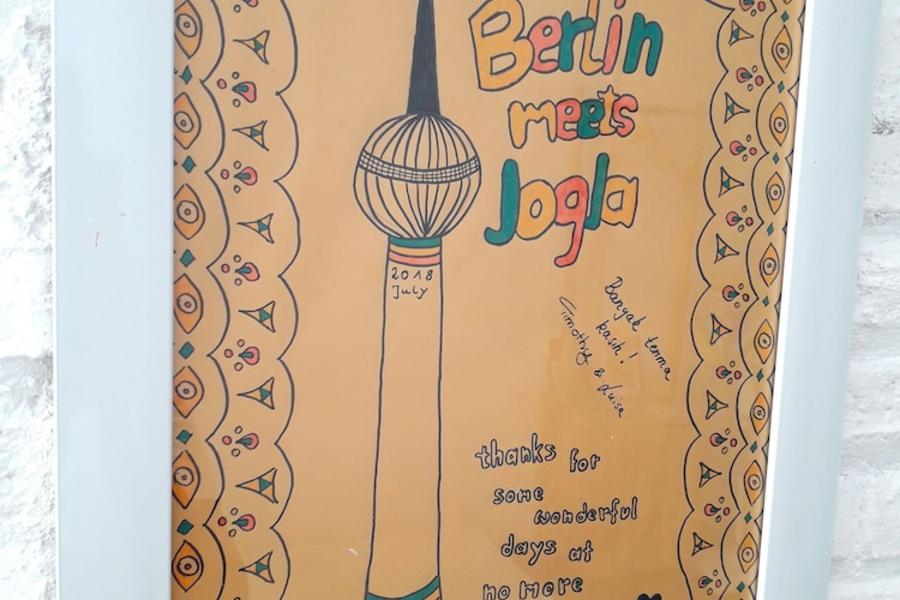 Berlin
meets
Jogla
2018
July
Banyak terima
kasih!
Timothy & Luisa
thanks for
some
wonderful
days at
no more